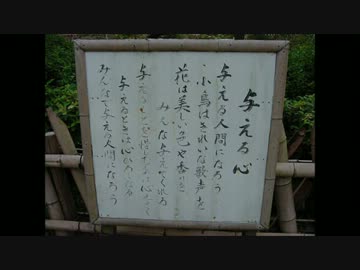 与える心
与える人間になろう
小鳥はきれいな歌声を
花は美しい色や香りを
みんな与えてくれる
与えることを惜しむ
与えるときは心から
みんなで与える人間になろう